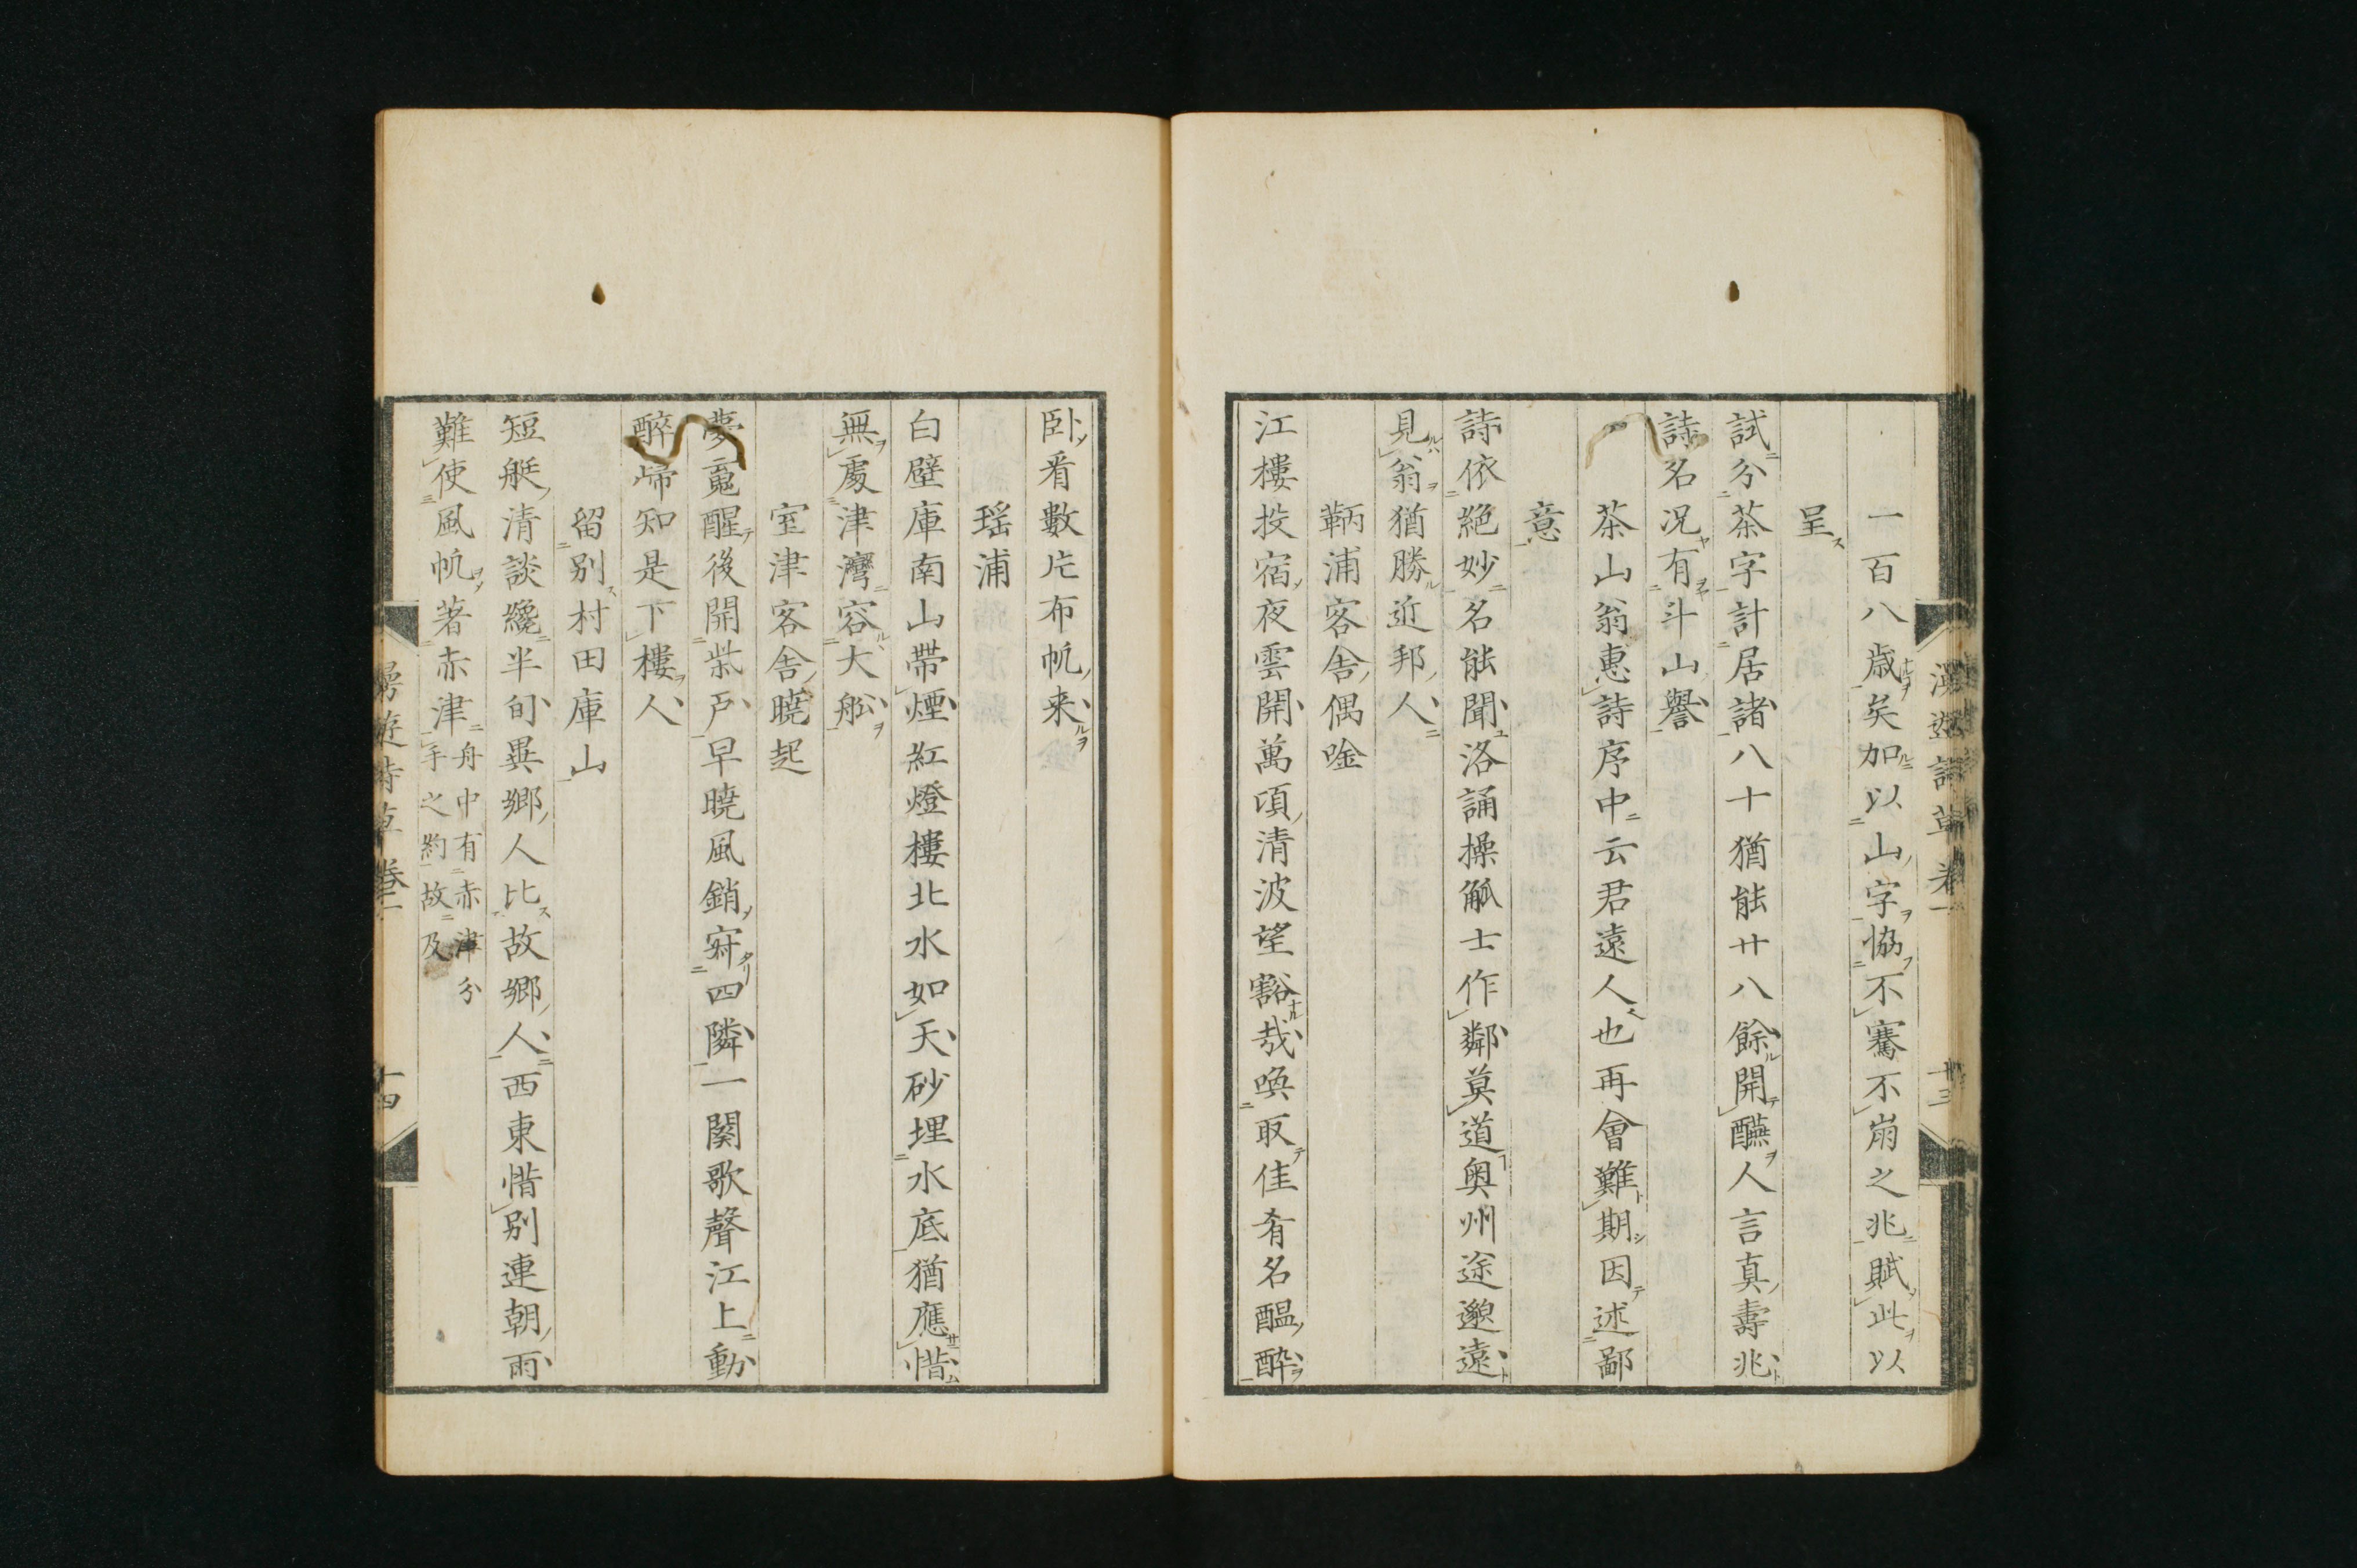 一百八歳矣加以山字協不騫不崩之兆賦此以
呈
試分茶字計居諸八十猶能廿八餘開醼人言真壽兆
詩名况有斗山譽
茶山翁惠詩序中云君遠人也再會難期因述鄙
意
詩依絶妙名能聞洛誦操觚士作鄰莫道奥州途邈遠
見翁猶勝近邦人
鞆浦客舎偶唫
江樓投宿夜雲開萬頃清波望豁哉喚取佳肴名醖酔
臥看數片布帆来
瑶浦
白壁庫南山帶煙紅燈樓北水如天砂埋水底猶應惜
無處津灣容大舩
室津客舎曉起
夢寬醒後開柴戸早曉風銷寂四隣一関歌聲江上動
醉歸知是下樓人
留別村田庫山
短艇清談纔半旬異郷人比故郷人西東惜別連朝雨
難使風帆著赤津
舟中有赤津分
手之約故及
漫遊詩草 巻一 十三
遊詩草 巻一 十四